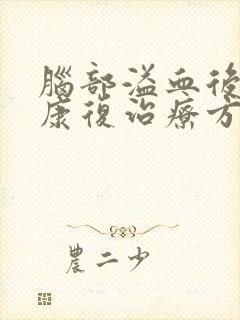 腦部溢血後
康復治療方
農二少